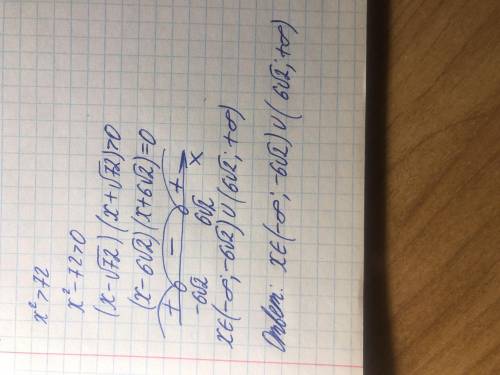 x²>72
x²-72>0
(x-√72)(x+√72)>0
(x-6√2)(x+6√2)=0
+ - +
-6√2 6√2 x
x∈(-∞; -6√2)∪(6√2; +∞)
Ответ: x∈(-∞; -6√2)∪(6√2; +∞)